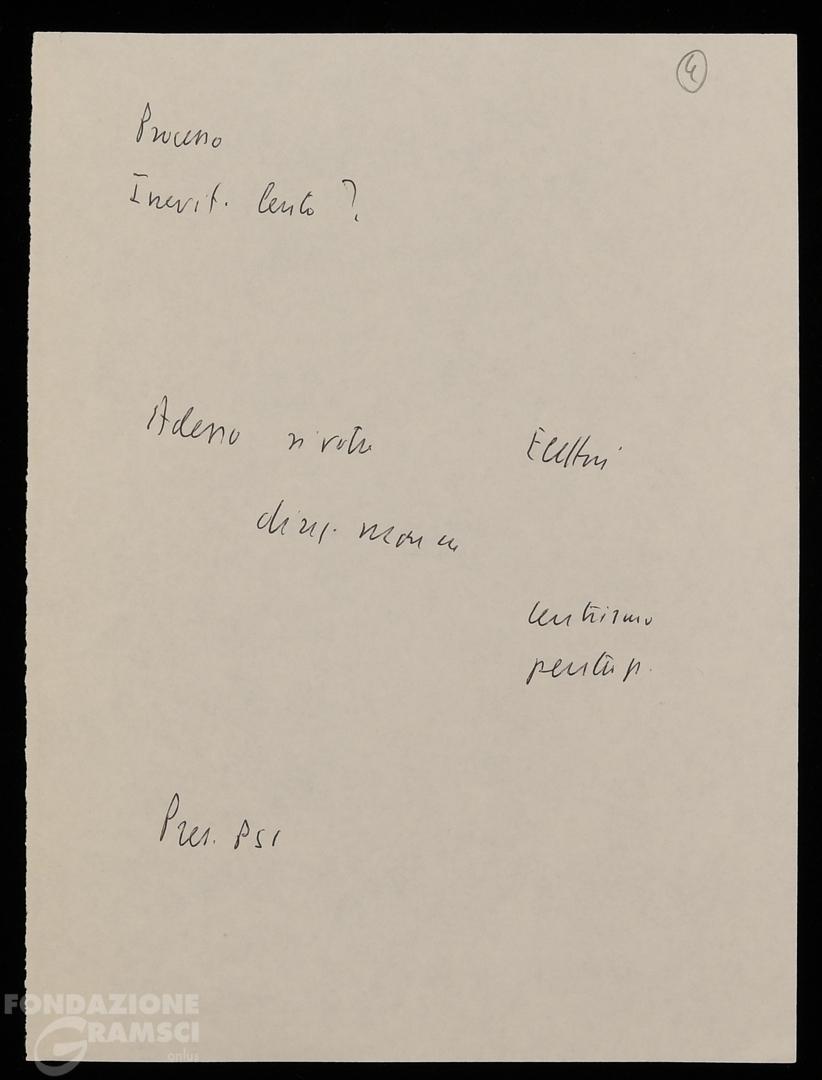 4
Processo
Inevit. lento ?
Adesso si vota
Elettori
centrismo
pentap.
Pres. PSI
FONDAZIONE
GRAMSCI
onlus